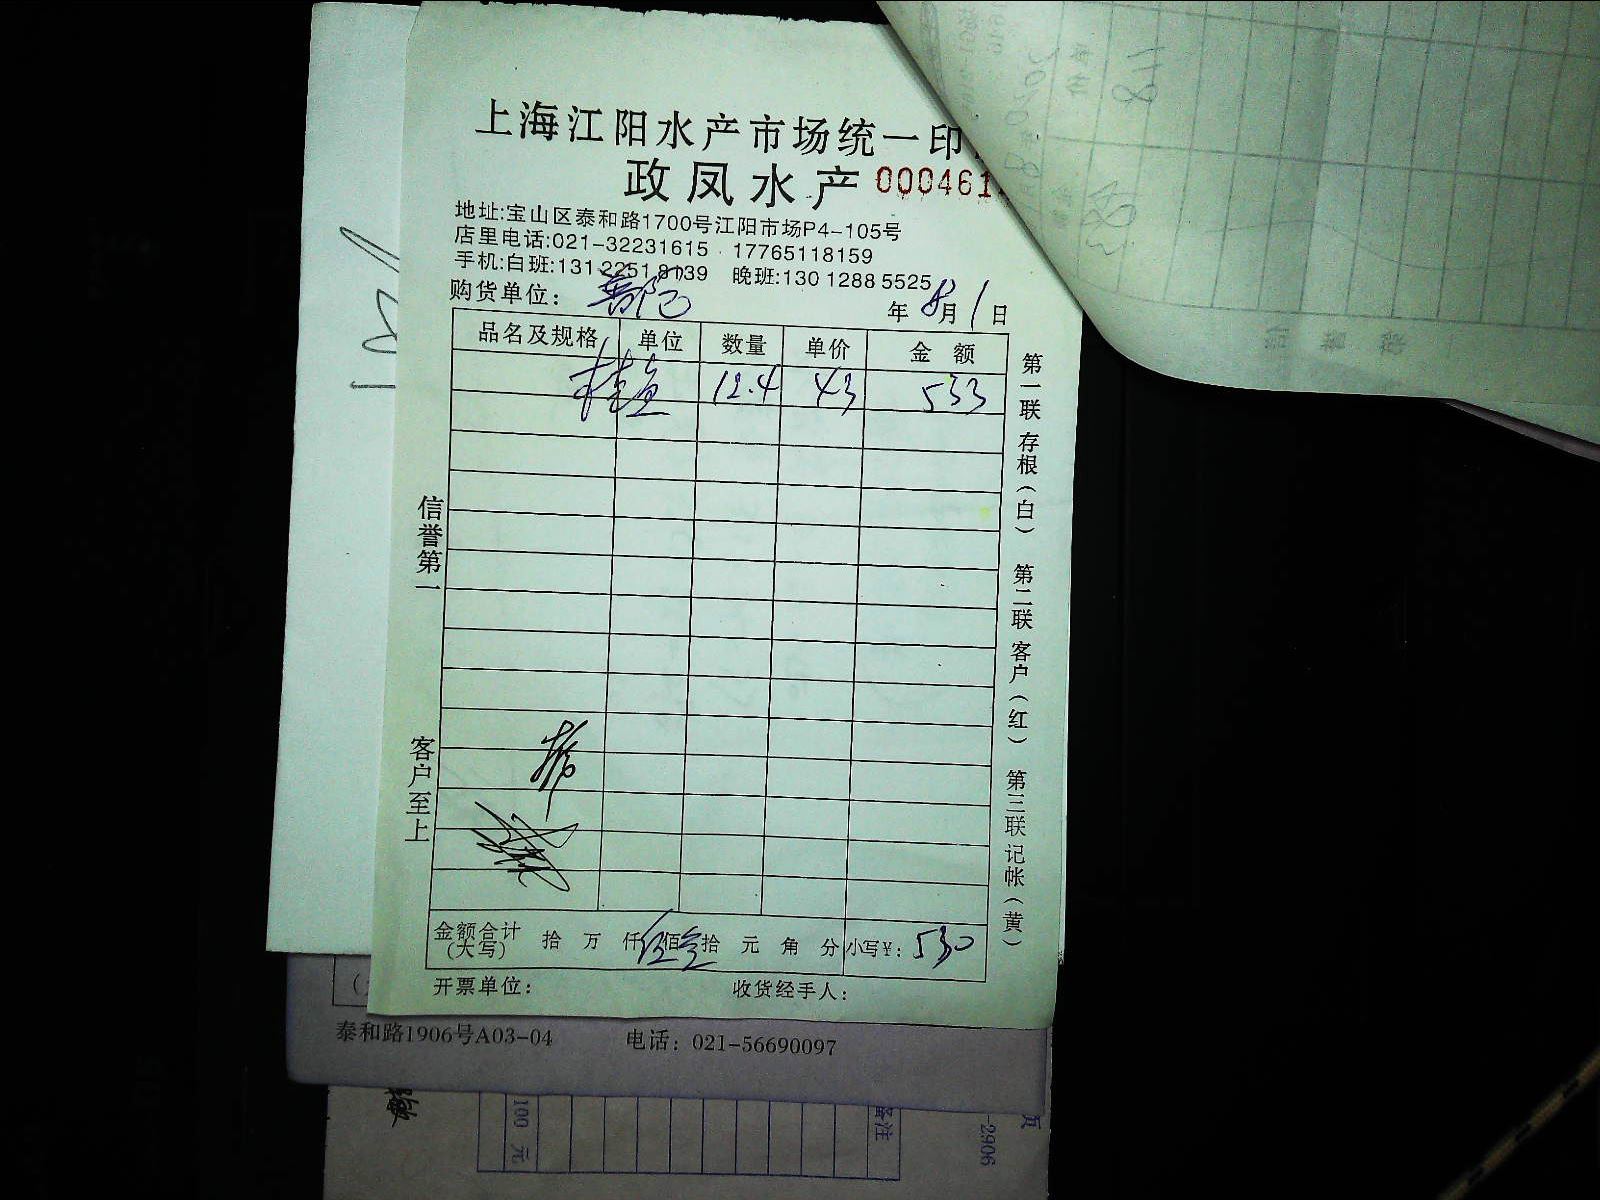 上海江阳水产市场统一印
政凤水产 000461
地址:宝山区泰和路1700号江阳市场P4-105号
店里电话:021-32231615 · 17765118159
手机:白班:131 2251 8139 晚班:130 1288 5525
购货单位:
年 8月 1日
品名及规格 单位 数量 单价 金 额
桂鱼 12.4 43 533
信誉第一
客户至上
第一联 存根(白) 第二联 客户(红) 第三联 记帐(黄)
金额合计 拾 万 仟 伍 佰 叁 拾 元 角 分 小写¥: 530
(大写)
开票单位: 收货经手人:
泰和路1906号A03-04 电话: 021-56690097
100 元
备注
-2906
页